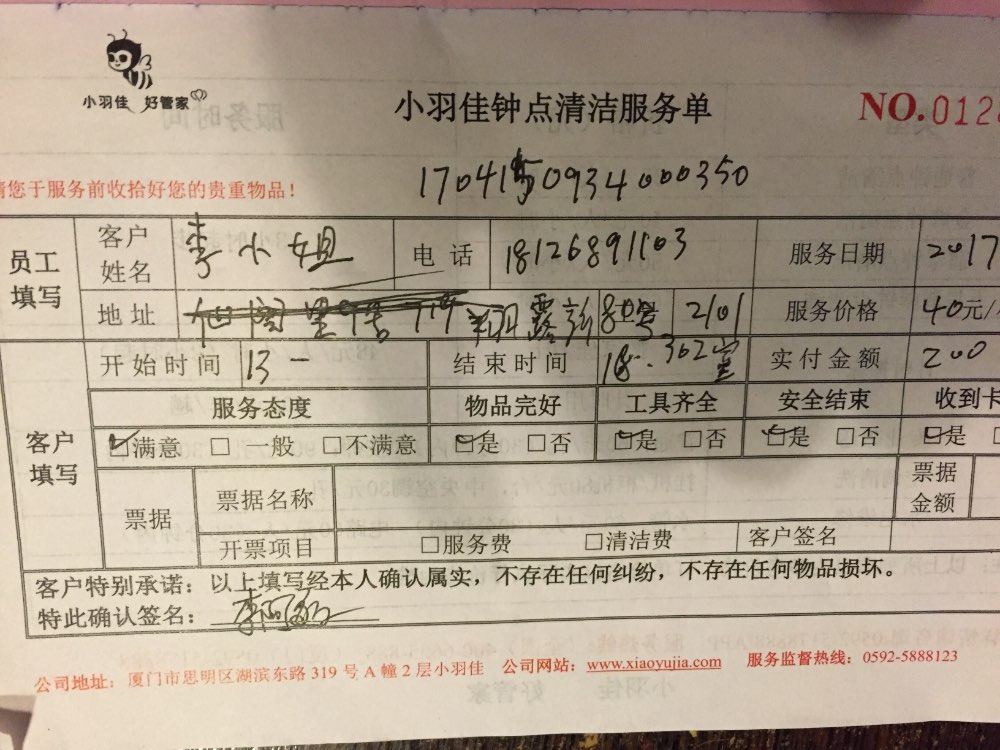 小羽佳 好管家
小羽佳钟点清洁服务单
NO.012
请您于服务前收拾好您的贵重物品!
0934000350
员工填写 客户姓名 李小姐 电话 18126891103 服务日期 2017
地址 80号 2101 服务价格 40元/
开始时间 13 结束时间 18. 302室 实付金额 200
客户填写 服务态度 物品完好 工具齐全 安全结束 收到卡
☑满意 □一般 □不满意 ☑是 □否 ☑是 □否 ☑是 □否 ☑是
票据 票据名称 票据金额
开票项目 □服务费 □清洁费 客户签名
客户特别承诺:以上填写经本人确认属实,不存在任何纠纷,不存在任何物品损坏。
特此确认签名:
公司地址:厦门市思明区湖滨东路 319 号 A 幢 2 层小羽佳 公司网站:www.xiaoyujia.com 服务监督热线:0592-5888123